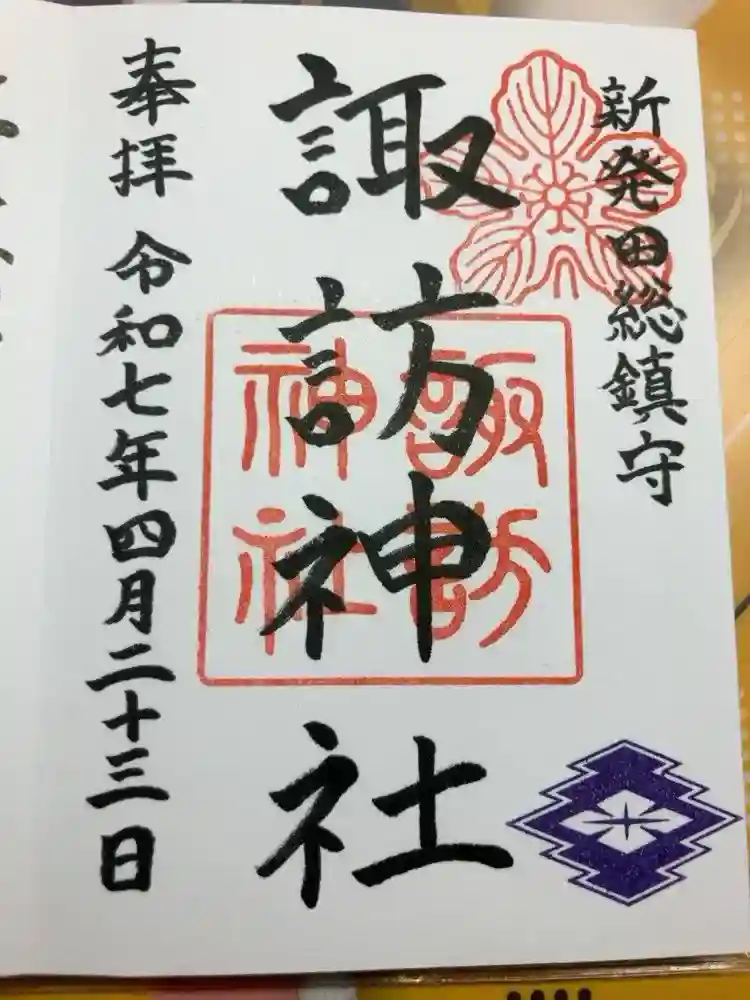 新発田総鎮守
諏訪神社
諏訪
神社
奉拝 令和七年四月二十三日